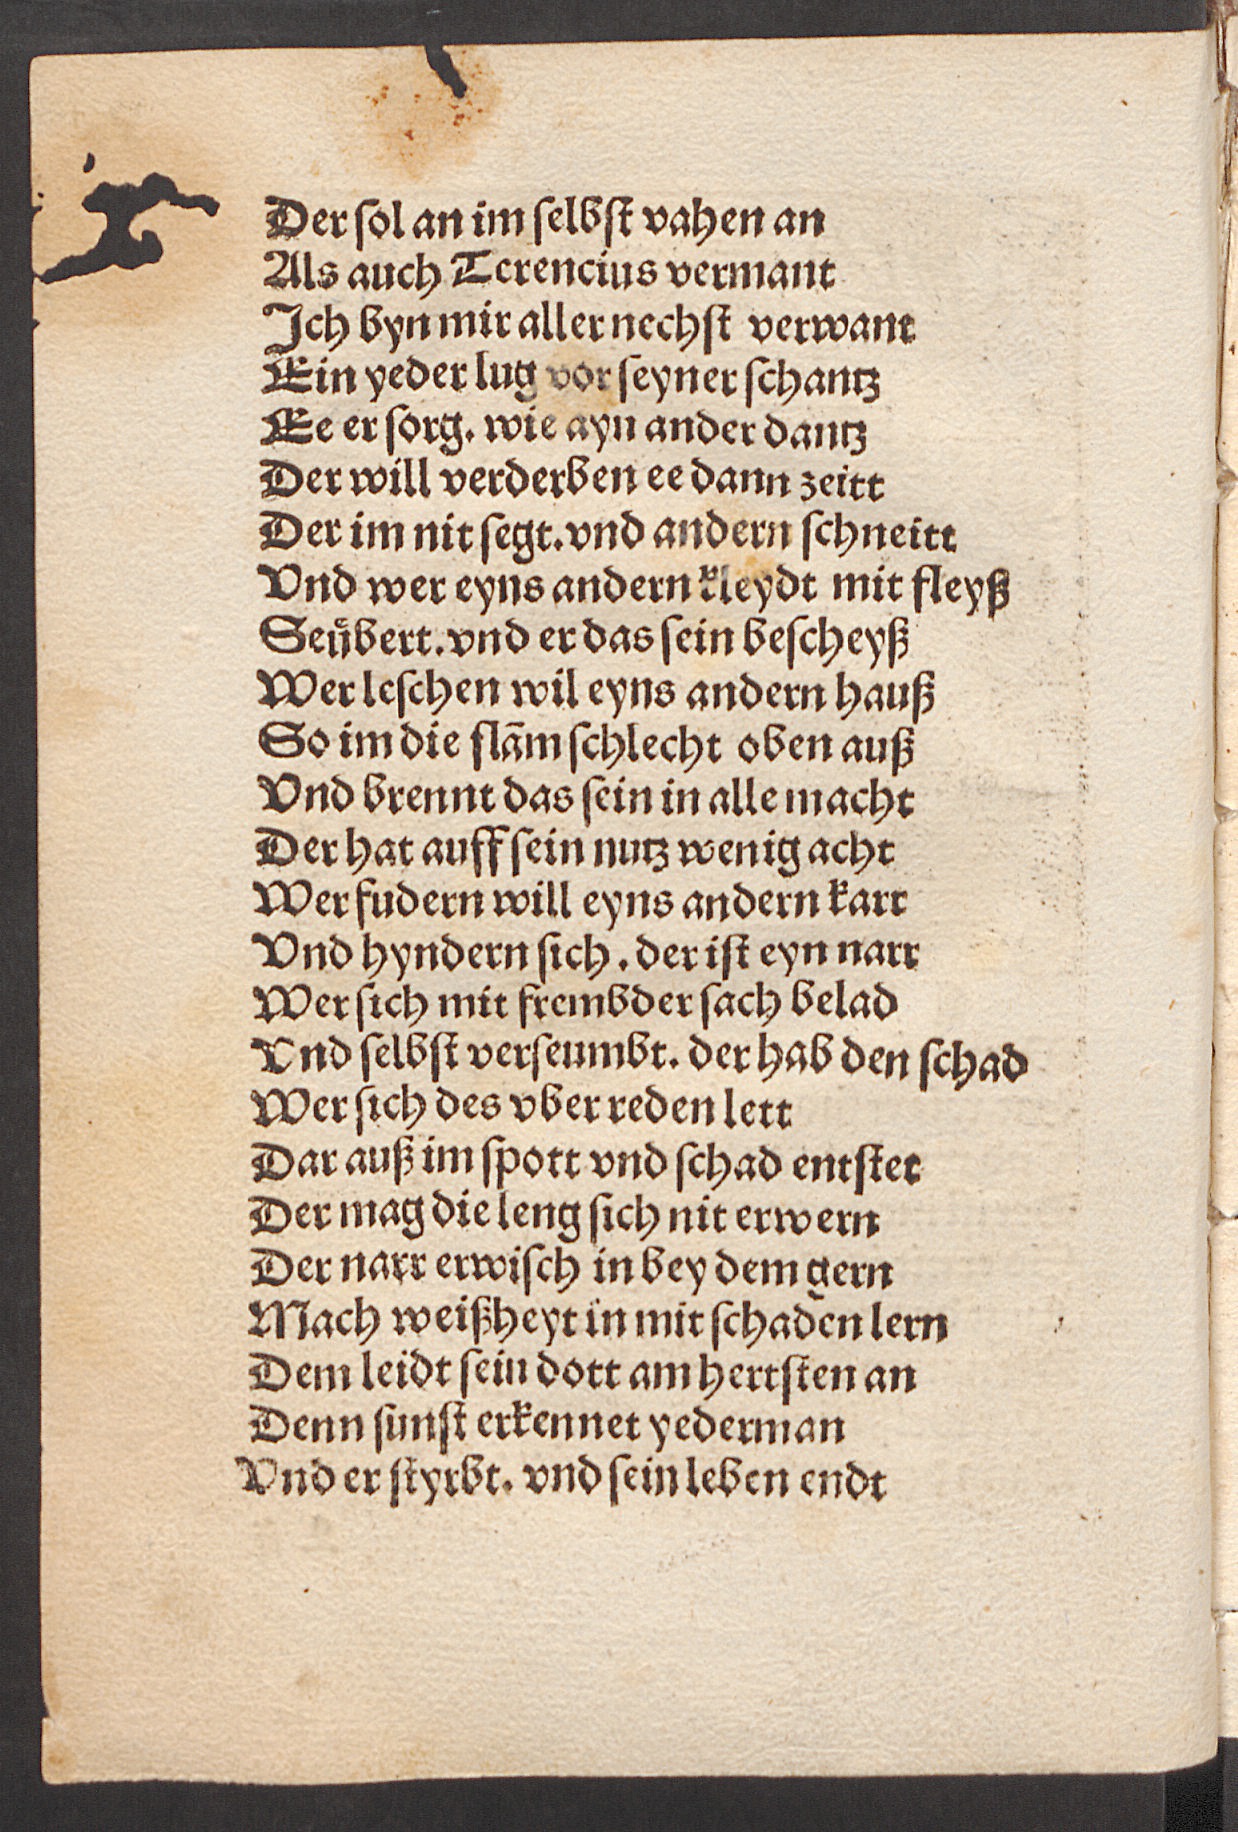 Der ſol an im ſelbſt vahen an
Als auch Terencius vermant
Ich byn mir aller nechſt verwant
Ein yeder lug vor ſeyner ſchantz
Ee er ſorg. wie ayn ander dantz
Der will verderben ee dann zeitt
Der im nit ſegt. vnd andern ſchneitt
Vnd wer eyns andern kleydt mit fleyß
Seuͤbert. vnd er das ſein beſcheyß
Wer leſchen wil eyns andern hauß
So im die flām ſchlecht oben auß
Vnd brennt das ſein in alle macht
Der hat auff ſein nutz wenig acht
Wer fudern will eyns andern karr
Vnd hyndern ſich. der iſt eyn narr
Wer ſich mit frembder ſach belad
Vnd ſelbſt verſeumbt. der hab den ſchad
Wer ſich des vber reden lett
Dar auß im ſpott vnd ſchad entſtet
Der mag die leng ſich nit erwern
Der narr erwiſch in bey dem gern
Mach weißheyt in mit ſchaden lern
Dem leidt ſein dott am hertſten an
Denn ſunſt erkennet yederman
Vnd er ſtyrbt. vnd ſein leben endt